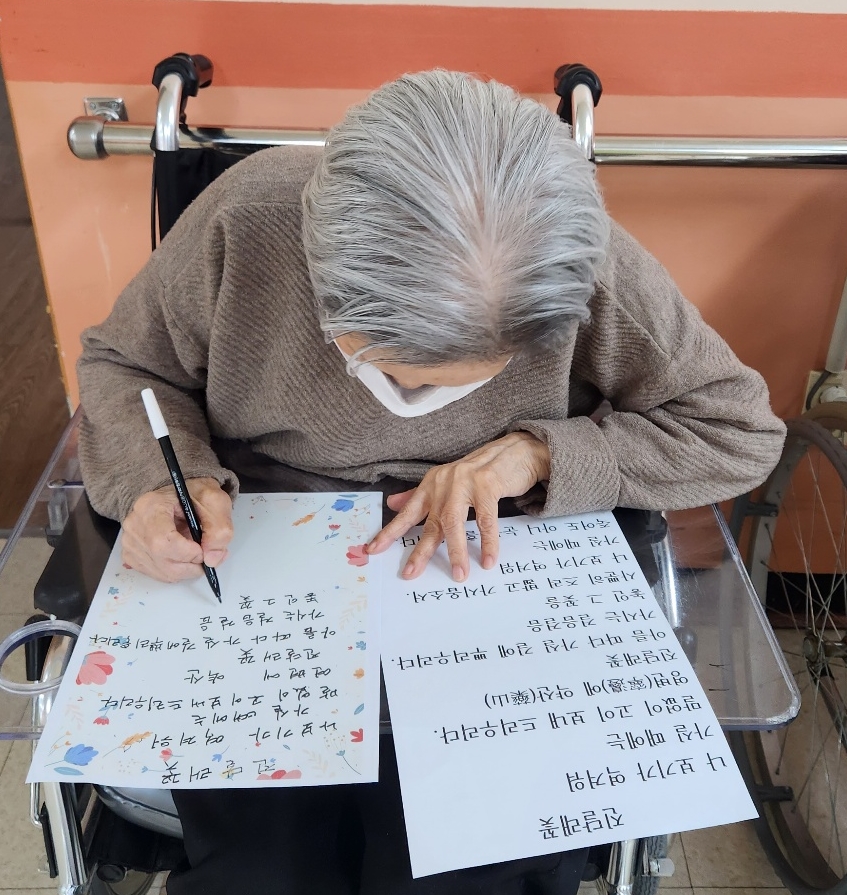 진달래꽃
나 보기가 역겨워
가실 때에는
말없이 고이 보내 드리우리다.
영변에 약산
진달래꽃
아름 따다 가실 길에뿌리우리다.
가시는 걸음걸음
놓인 그 꽃
진달래꽃
나 보기가 역겨워
가실 때에는
말없이 고이 보내 드리우리다.
영변(寧邊)에 약산(藥山)
진달래꽃
아름 따다 가실 길에 뿌리우리다.
가시는 걸음걸음
놓인 그 꽃을
사뿐히 즈려 밟고 가시옵소서.
나 보기가 역겨워
가실 때에는
죽어도 아니